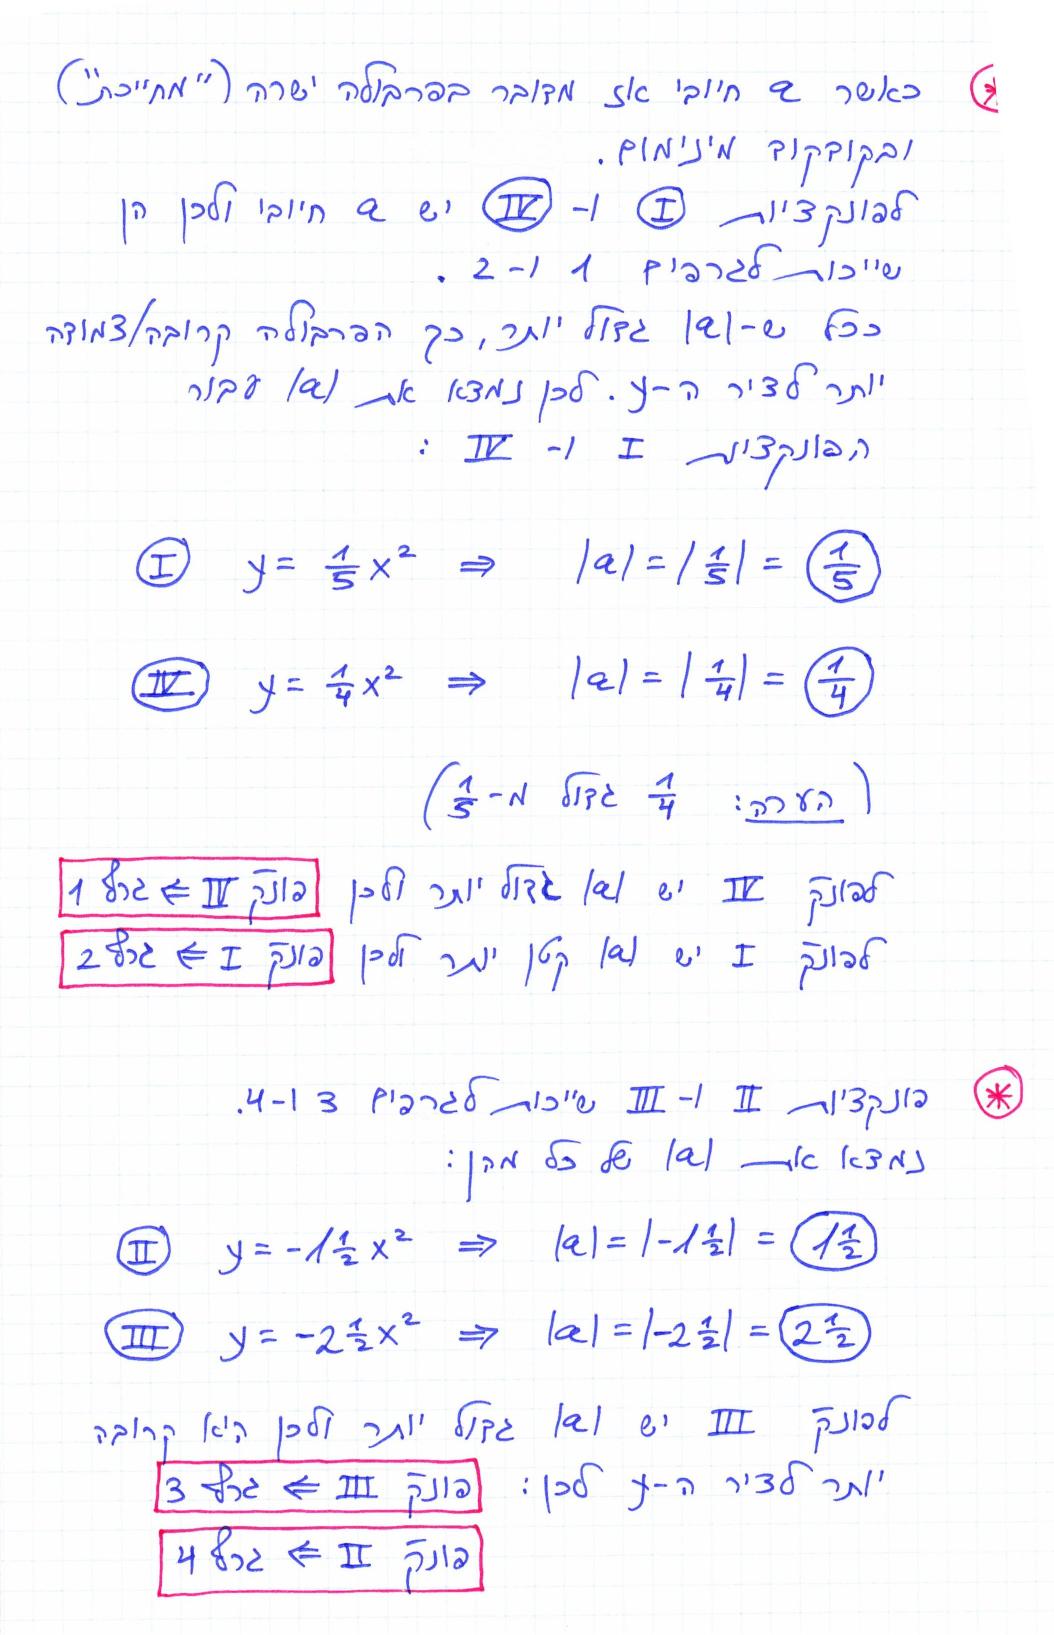 * כאשר a חיובי אז מדובר בפרבולה ישרה ("מחייכת")
ובקודקוד מינימום.
לפונקציות I ו- IV יש a חיובי ולכן הן
שייכות לגרפים 1 ו-2.
ככל ש-|a| גדול יותר, כך הפרבולה קרובה/צמודה
יותר לציר ה-y. לכן נמצא את |a| עבור
הפונקציות I ו- IV :
I y = 1/5 x² ⇒ |a| = |1/5| = 1/5
IV y = 1/4 x² ⇒ |a| = |1/4| = 1/4
(הערה: 1/4 גדול מ-1/5)
לפונק' IV יש |a| גדול יותר ולכן פונק' IV ⇐ גרף 1
לפונק' I יש |a| קטן יותר ולכן פונק' I ⇐ גרף 2
* פונקציות II ו- III שייכות לגרפים 3 ו-4.
נמצא את |a| של כל מהן:
II y = -1 1/2 x² ⇒ |a| = |-1 1/2| = 1 1/2
III y = -2 1/2 x² ⇒ |a| = |-2 1/2| = 2 1/2
לפונק' III יש |a| גדול יותר ולכן היא קרובה
יותר לציר ה-y לכן: פונק' III ⇐ גרף 3
פונק' II ⇐ גרף 4